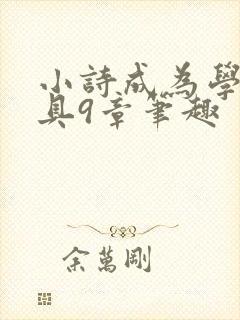 小詩成為學
具9章筆趣
余萬剛